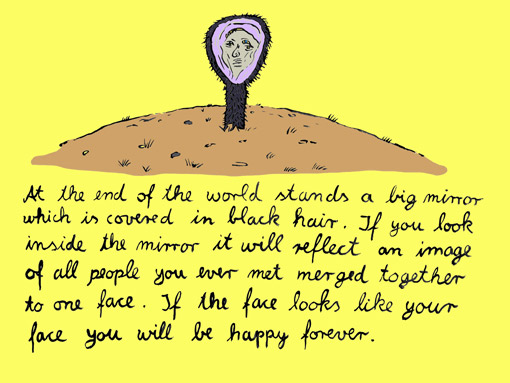 At the end of the world stands a big mirror
which is covered in black hair. If you look
inside the mirror it will reflect an image
of all people you ever met merged together
to one face. If the face looks like your
face you will be happy forever.